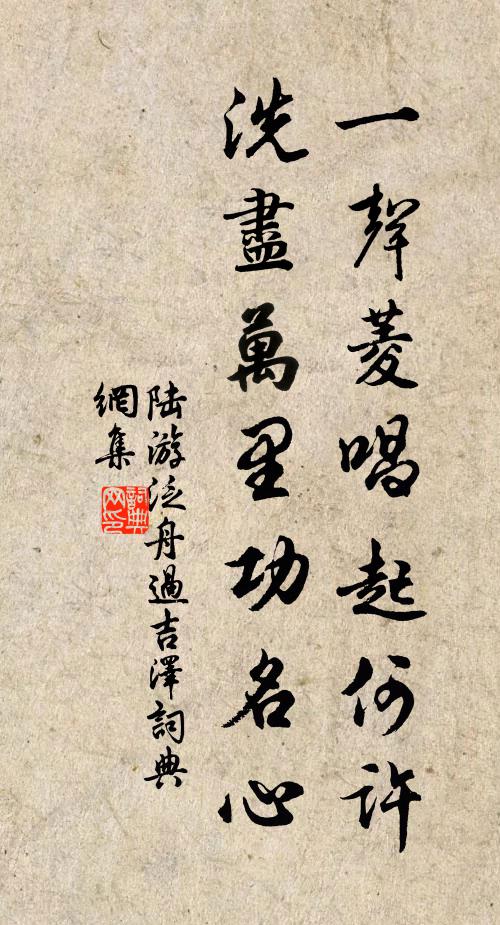 一聲菱唱起何許
洗盡萬里功名心
陸游泛舟過吉澤詞典
網集
詞典
网印